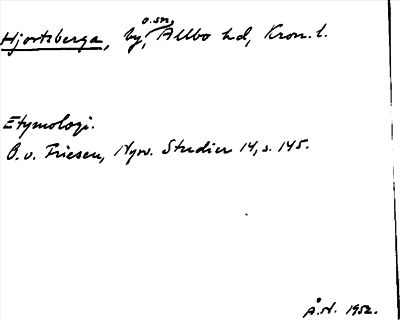 Hjortsberga, by, o. sn, Allbo hd, Kron. l.
Etymologi.
O. v. Friesen, Nysv. Studier 14, s. 145.
Å. N. 1952.